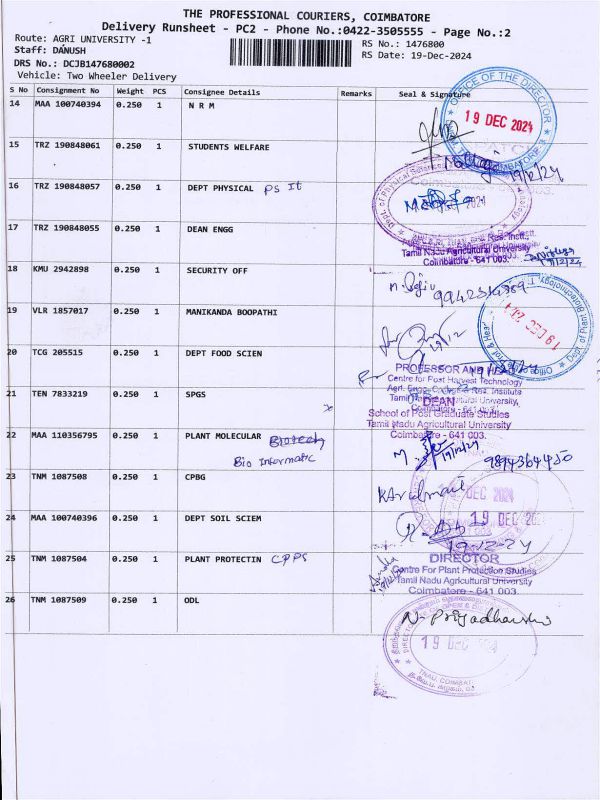 THE PROFESSIONAL COURIERS, COIMBATORE
Delivery Runsheet - PC2 - Phone No.:0422-3505555 - Page No.:2
Route: AGRI UNIVERSITY -1
RS No.: 1476800
Staff: DANUSH
RS Date: 19-Dec-2024
DRS No.: DCJB147680002
Vehicle: Two Wheeler Delivery
S No Consignment No Weight PCS Consignee Details Remarks Seal & Signature
14 MAA 100740394 0.250 1 N R M
OFFICE OF THE DIRECTOR
19 DEC 2024
15 TRZ 190848061 0.250 1 STUDENTS WELFARE
19/12/24
16 TRZ 190848057 0.250 1 DEPT PHYSICAL PS It
17 TRZ 190848055 0.250 1 DEAN ENGG
Tamil Nadu Agricultural University
Coimbatore - 641 003.
18 KMU 2942898 0.250 1 SECURITY OFF
19 VLR 1857017 0.250 1 MANIKANDA BOOPATHI
19/12
Dept. of Plant Biotechnology
20 TCG 205515 0.250 1 DEPT FOOD SCIEN
PROFESSOR AND HEAD
Centre for Post Harvest Technology
Agri. Engg. College & Res. Institute
21 TEN 7833219 0.250 1 SPGS
DEAN
School of Post Graduate Studies
Tamil Nadu Agricultural University
Coimbatore - 641 003.
22 MAA 110356795 0.250 1 PLANT MOLECULAR Biotech
Bio Informatic
19/12/24
9894364450
23 TNM 1087508 0.250 1 CPBG
DEC 2024
24 MAA 100740396 0.250 1 DEPT SOIL SCIEM
19 DEC 202
19-12-24
25 TNM 1087504 0.250 1 PLANT PROTECTIN CPPS
DIRECTOR
Centre For Plant Protection Studies
Tamil Nadu Agricultural University
Coimbatore - 641 003.
26 TNM 1087509 0.250 1 ODL
N. Priyadharshni
19 DEC 2024
TNAU, COIMBAT